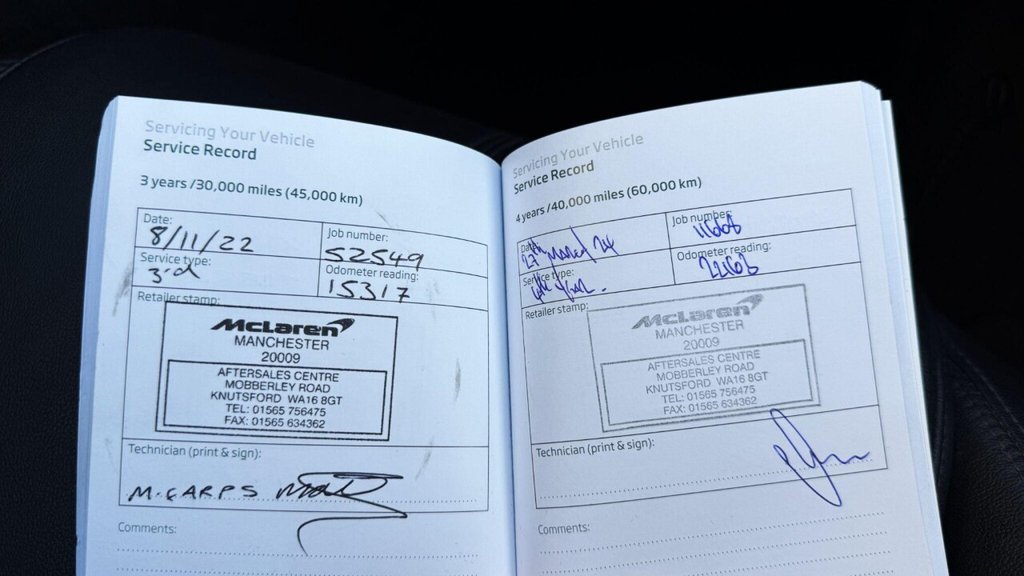 Servicing Your Vehicle
Service Record
3 years /30,000 miles (45,000 km)
Date:
8/11/22
Job number:
52549
Service type:
3rd
Odometer reading:
15317
Retailer stamp:
McLaren
MANCHESTER
20009
AFTERSALES CENTRE
MOBBERLEY ROAD
KNUTSFORD WA16 8GT
TEL: 01565 756475
FAX: 01565 634362
Technician (print & sign):
M. EARPS
Comments:
Servicing Your Vehicle
Service Record
4 years /40,000 miles (60,000 km)
Date:
27th March 24
Job number:
Service type:
4th year.
Odometer reading:
Retailer stamp:
McLaren
MANCHESTER
20009
AFTERSALES CENTRE
MOBBERLEY ROAD
KNUTSFORD WA16 8GT
TEL: 01565 756475
FAX: 01565 634362
Technician (print & sign):
Comments: